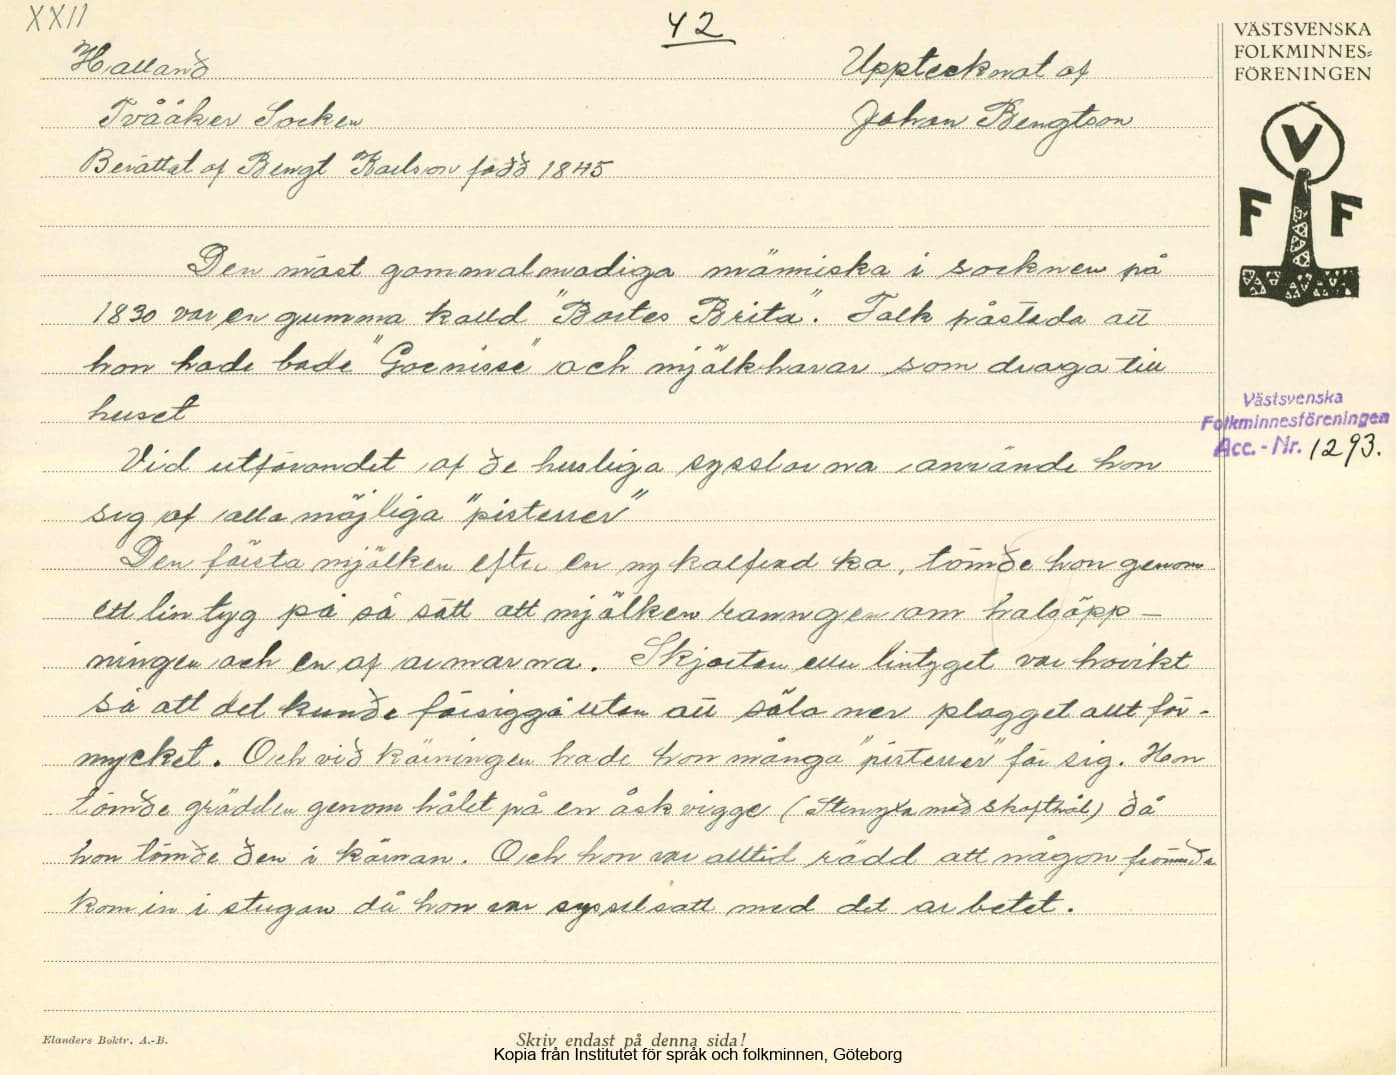 XXII
42
Halland
Upptecknat af
Tvååker Socken
Johan Bengtson
Berättat af Bengt Karlson född 1845
VÄSTSVENSKA
FOLKMINNES=
FÖRENINGEN
V
F F
Den mäst gammalmodiga människa i socknen på
1830 var en gumma kalld "Bortes Brita". Folk påstoda att
hon hade både "Goenisse" och mjölkharar som droga till
huset
Västsvenska
Folkminnesföreningen
Acc.-Nr. 1293.
Vid utförandet af de husliga sysslorna använde hon
sig af alla möjliga "pisterrer"
Den första mjölken efter en ny kalfvad ko, tömde hon genom
ett lintyg på så sätt att mjölken rann genom halsöpp-
ningen och en af armarna. Skjortan eller lintyget var hovikt
så att det kunde försiggå utan att söla ner plagget allt för-
mycket. Och vid kärningen hade hon många "pisterrer" för sig. Hon
tömde grädden genom hålet på en åskvigge (Stenyxa med skafthål) då
hon tömde den i kärnan. Och hon var alltid rädd att någon främmde
kom in i stugan då hon var sysselsatt med det arbetet.
Elanders Boktr. A.-B.
Skriv endast på denna sida!
Kopia från Institutet för språk och folkminnen, Göteborg